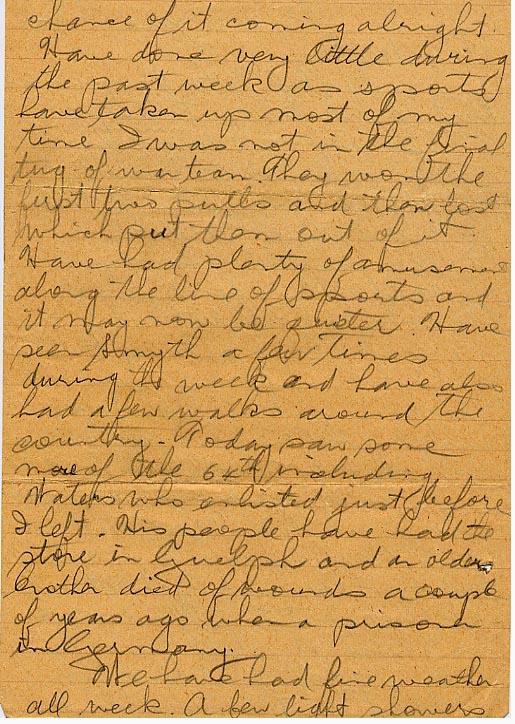 chance of it coming alright.
Have done very little during
the past week as sports
have taken up most of my
time I was not in the final
tug of war team. They won the
first two pulls and then lost
which put them out of it.
Have had plenty of amusement
along the line of sports and
it may now be quieter. Have
seen Smyth a few times
during the week and have also
had a few walks around the
country. Today saw some
more of the 64th including
Waters who enlisted just before
I left. His people have had the
store in Guelph and an older
brother died of wounds a couple
of years ago when a prisoner
in Germany.
We have had fine weather
all week. A few light showers